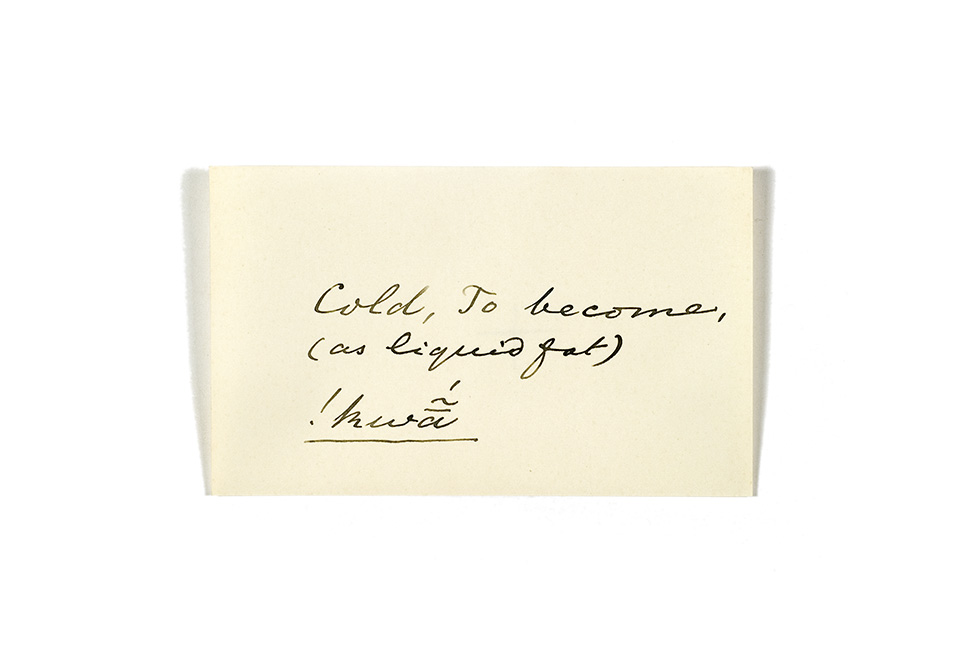 Cold, To become,
(as liquid fat)
!kwā̃́